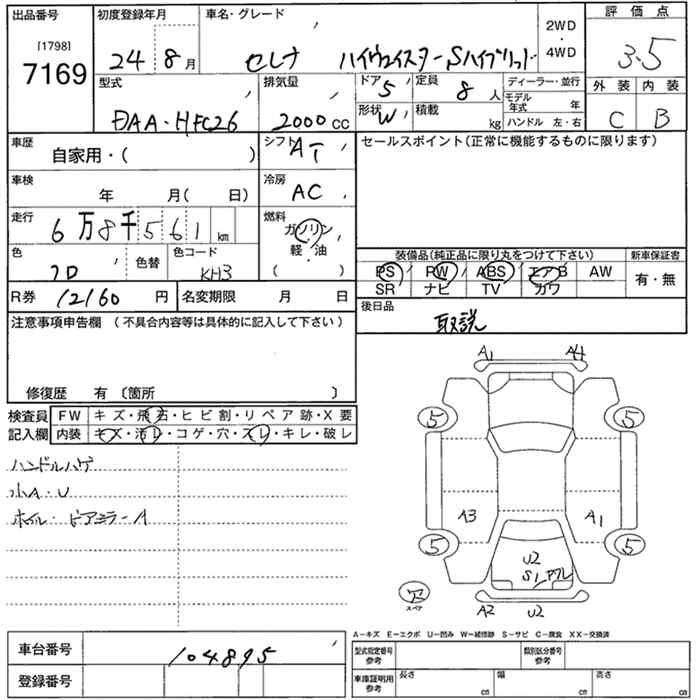 出品番号 [1798] 7169
初度登録年月 24年 8月
車名・グレード セレナ ハイウェイスターSハイブリッド
2WD・4WD
評価点 3.5
外装 C 内装 B
型式 DAA-HFC26
排気量 2000 CC
ドア 5 定員 8人
形状 W 積載 kg
ディーラー・並行
モデル年式 年
ハンドル 左・右
車歴 自家用・( )
シフト AT
セールスポイント(正常に機能するものに限ります)
車検 年 月( 日)
冷房 AC
走行 6万8千561 km
燃料 ガソリン 軽・油 ( )
色 色替 色コード KH3
装備品(純正品に限り丸をつけて下さい) 新車保証書
PS PW ABS エアB AW 有・無
SR ナビ TV カワ
R券 12160円 名変期限 月 日
後日品 取説
注意事項申告欄(不具合内容等は具体的に記入して下さい)
修復歴 有 〔箇所 〕
検査員記入欄
FW キズ・飛石・ヒビ割・リペア跡・X要
内装 キズ・汚レ・コゲ・穴・スレ・キレ・破レ
ハンドルハゲ
小A・U
ホイル・ドアミラーA
A1 A4
5 5
A3 A1
5 5
U2
S1
スペア
A2 U2
A-キズ E-エクボ U-凹み W-補修跡 S-サビ C-腐食 XX-交換済
車台番号 104895
登録番号
型式指定番号 参考 類別区分番号 参考
車庫証明用 参考 長さ cm 幅 cm 高さ cm